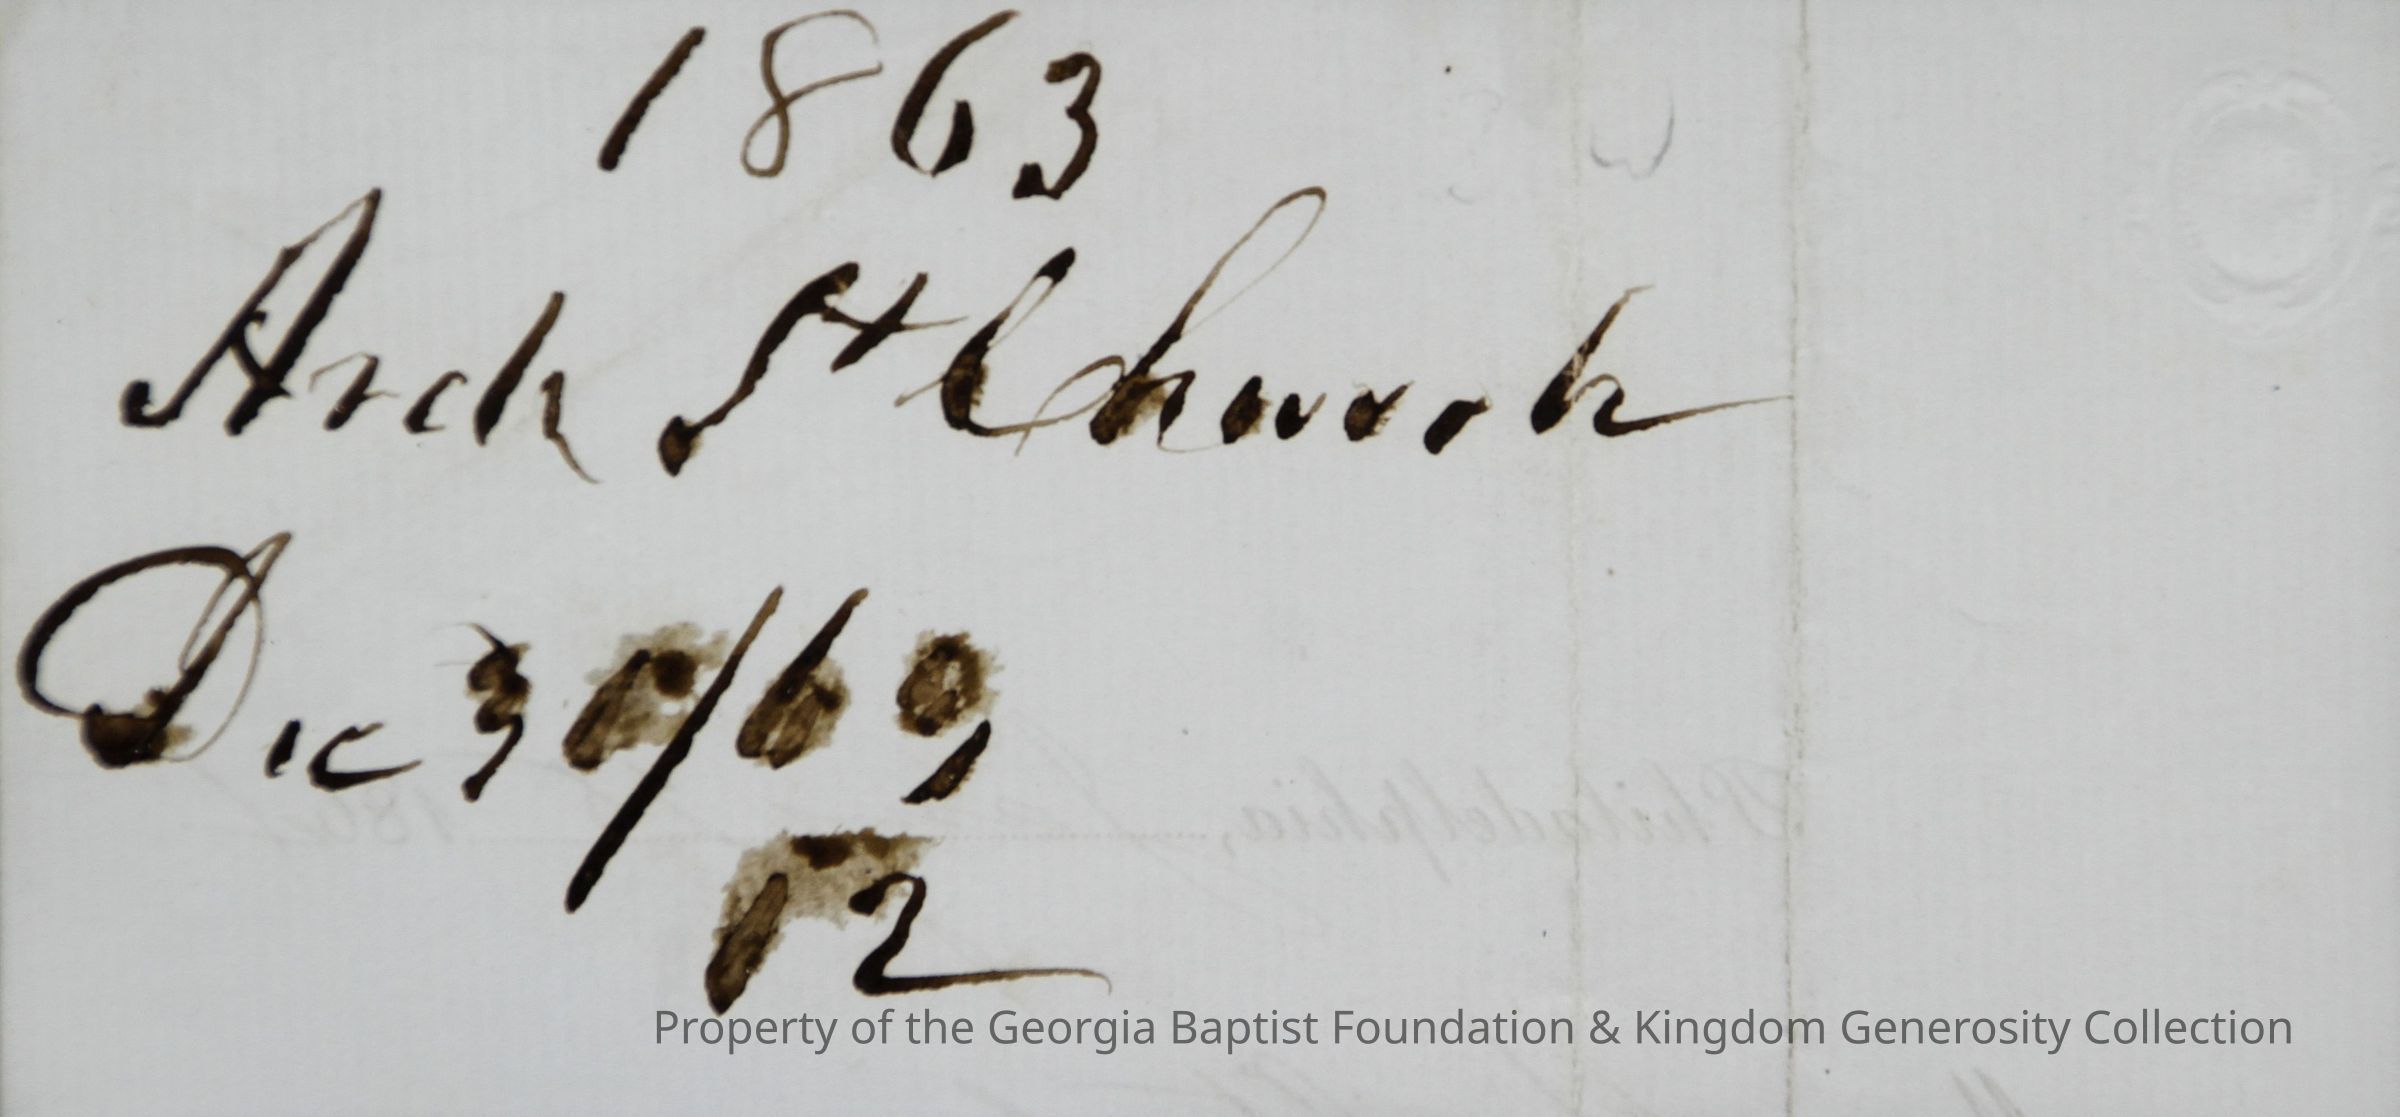 1863
Arch St Church
Dec 30/63
12
Property of the Georgia Baptist Foundation & Kingdom Generosity Collection
Philadelphia, 186